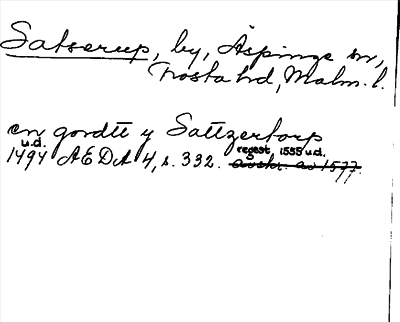 Satserup, by, Äspinge sn,
Frosta hd, Malm. l.
en gordtt y Sattzertorp
u.d. regest, 1555 u.d.
1494 AEDA 4, s. 332. avskr. av 1577.